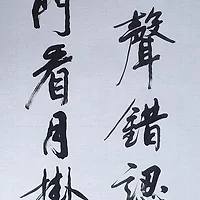 聲錯認
門看月掛